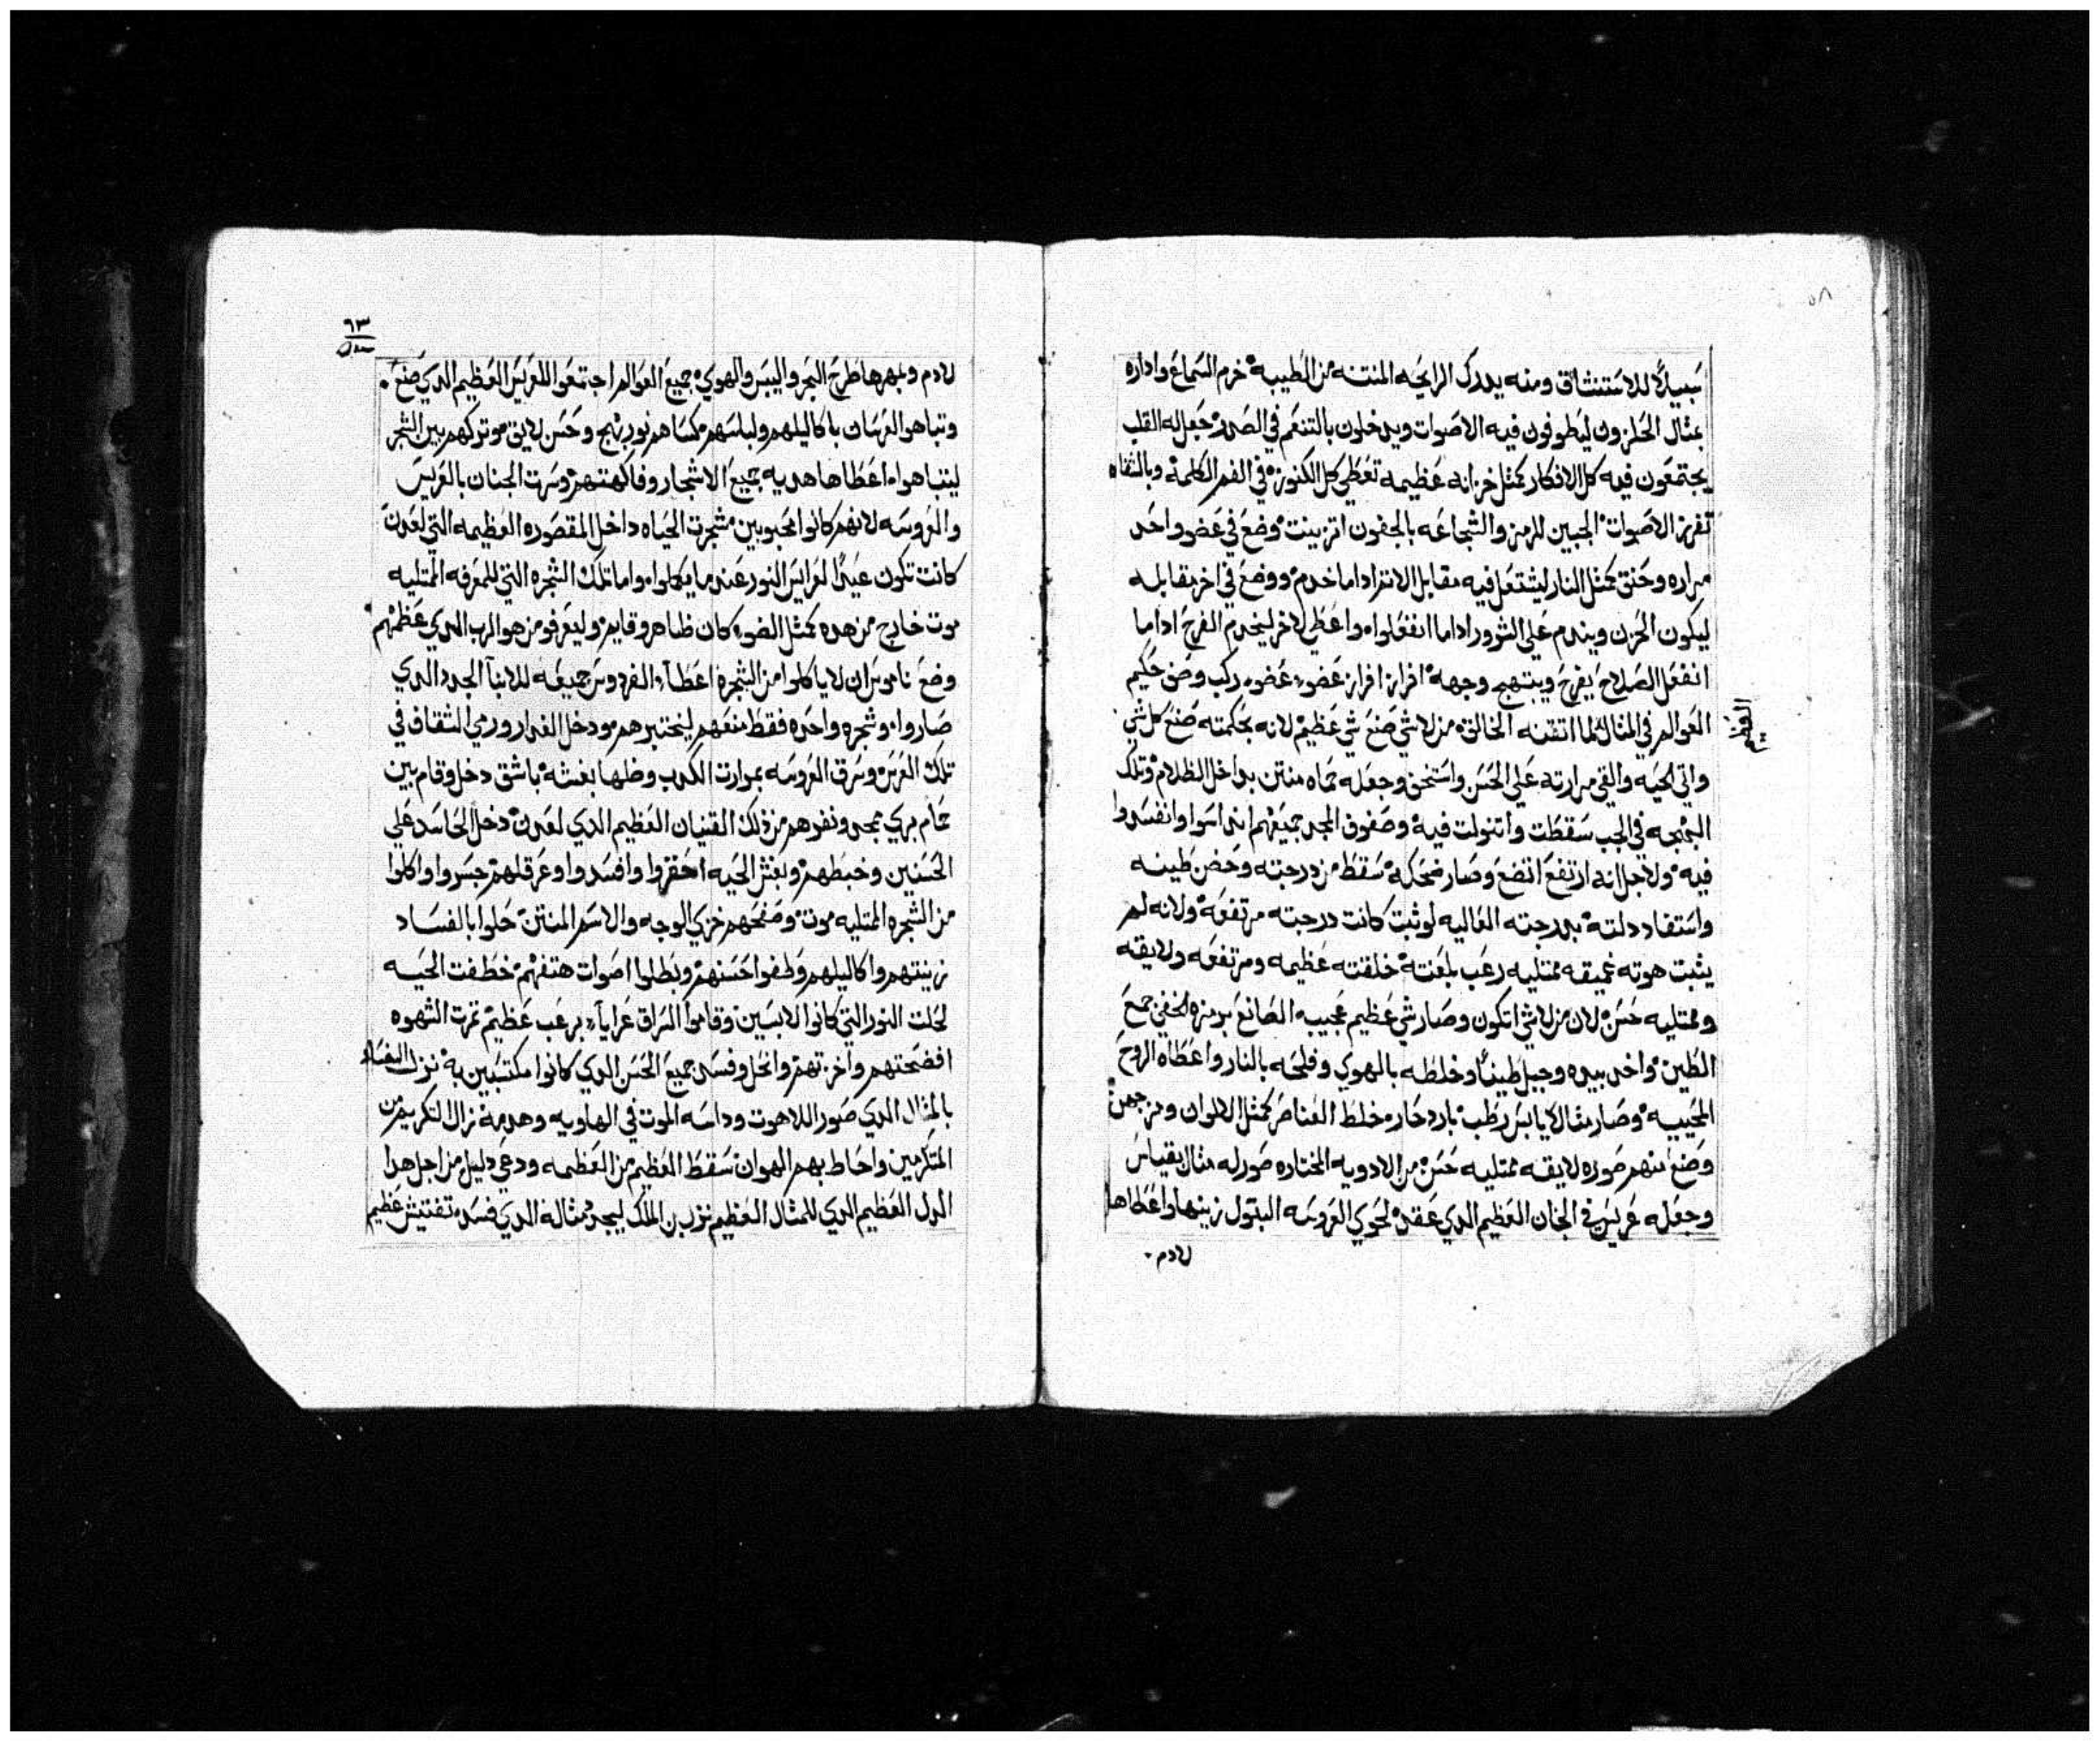 سبيلًا للاستنشاق ومنه يدرك الرايحه المنتنه من الطيبه خرم السماع واداره
بمثال الحلزون ليطوفون فيه الاصوات ويدخلون بالتنعم في الصدر جعل له القلب
يجتمعون فيه كل الافكار كمثل خزانه عظيمه تعطي كل الكنوز في الفم الكلمه وبالشفاه
تفرز الاصوات الجبين للرمز والشجاعه بالجفون اتزينت وضع في عضو واحد
مراره وحنق كمثل النار ليشتعل فيه مقابل الاشرار اداما خدم ووضع في اخر مقابله
ليكون الحزن ويندم علي الشرور اداما انفعلوا واعطي لاخر ليخدم الفرح اداما
انفعل الصلاح يفرح ويبتهج وجهه افراز افراز عضو عضو ركب وضف حكيم
العوالم في المثال لما اتقنه الخالق من لاشي صنع شي عظيم لانه بحكمته صنع كل شي
واتي الحيه والقي مرارته علي الحسن واستخن وجعله حماه منتن بداخل الظلام وتلك
البهجه في الجب سقطت واتنولت فيه وصفوف المجد جميعهم انداسوا وانفسدوا
فيه ولاجل انه ارتفع اتضع وصار ضحكه سقط من درجته وحضن طينه
واستفاد دلته بدرجته العاليه لو ثبت كانت درجته مرتفعه ولانه لم
يثبت هوته غميقه ممتليه رعب بلعنته خلقته عظيمه ومرتفعه ولايقه
وممتليه حسن لان من لاشي اتكون وصار شي عظيم عجيب الصانع برمزه الخفي جمع
الطين واخد بيده وجبل طينًا وخلطه بالهوي وفلحه بالنار واعطاه الروح
المحييه وصار مثالا يابس رطب بارد حار خلط العناصر كمثل الالوان ومزجهن
وصنع منهم صوره لايقه ممتليه حسن من الادويه المختاره صور له مثال بقياس
وجعله عريس في الجنان العظيم الدي عقد لحوي العروسه البتول زينها واعطاها
لادم
لادم وبمهرها طرح البحر واليبس والهوي جميع العوالم اجتمعوا للعريس العظيم الدي صنع
وتباهوا العرسان باكاليلهم ولباسهم مكساهم نور بهج وحسن لايق موتركهم بين الشجر
ليتباهوا اعطاها هديه جميع الاشجار وفاكهتهم وسرت الجنان بالعريس
والعروسه لانهم كانوا محبوبين شجرت الحياه داخل المقصوره العظيمه التي لعدن
كانت تكون عيدًا لعرايس النور عندما يكملوا واما تلك الشجره التي للمعرفه الممتليه
موت خارج من هده كمثل الضو كان ظاهر وقايم وليعرفو من هو الرب الدي عظمهم
وضع ناموس ان لا ياكلوا من الشجره اعطا الفردوس جميعه للابنا الجدد الدي
صاروا وشجره واحده فقط منعهم ليختبرهم ودخل الغدار ورمي الشقاف في
تلك العرس وسرق العروسه بموارت الكدب وظلها بغشه باشق دخل وقام بين
حمام بري مجد ونفدهم من ذلك القنيان العظيم الدي لعدن دخل الحاسد علي
الحسنين وخبطهم وبغش الحيه احقروا وافسدوا وعرقلهم جسروا واكلوا
من الشجره الممتليه موت وصفحهم خزي الوجه والاسم المنتن حلوا بالفساد
زينتهم واكاليلهم وطفوا حسنهم وبطلوا اصوات هتفهم خطفت الحيه
لحلت النور التي كانوا لابسين وقاموا الشراق عرايا برعب عظيم تمرت الشهوه
افضحتهم واخزتهم وانحل وفسد جميع الحسن الدي كانوا مكتسبين به نزل الفساد
بالمثال الدي صور اللاهوت وداسه الموت في الهاويه وهدمه نزال التكريم من
المتكرمين واحاط بهم الهوان سقط العظيم من العظمه ودعي دليل من اجل هدا
الدل العظيم الدي للمثال العظيم نزل بن الملك ليجدد مثاله الدي فسد تفتيش عظيم